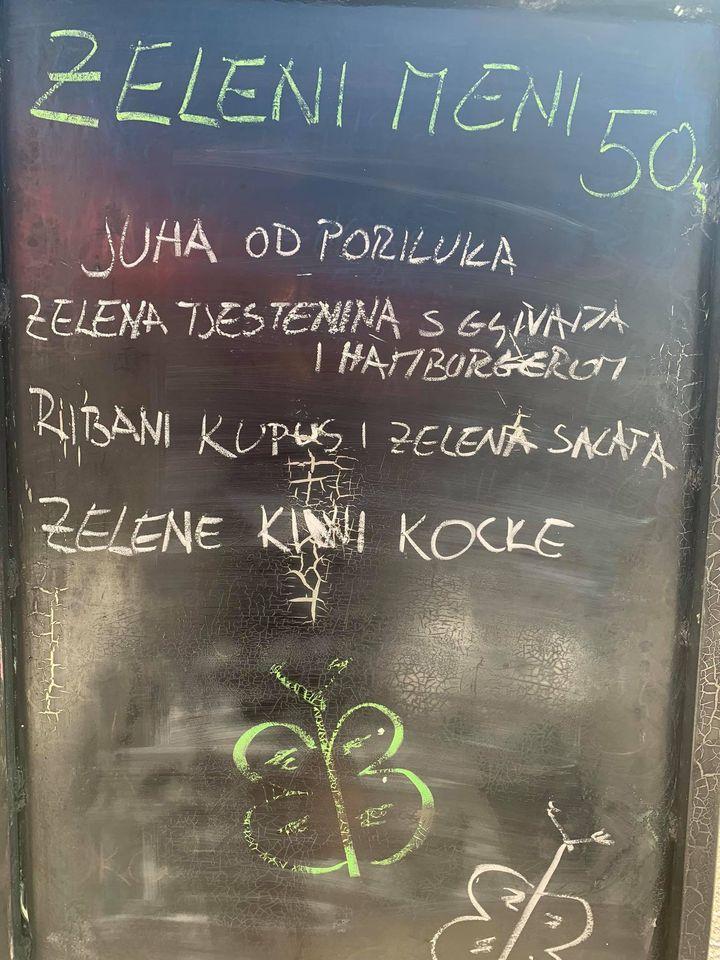 ZELENI MENI
50
JUHA OD PORILUKA
ZELENA TJESTENINA S
I HAMBURGEROM
RIBANI KUPUS I ZELENA SALATA
ZELENE KIWI KOCKE